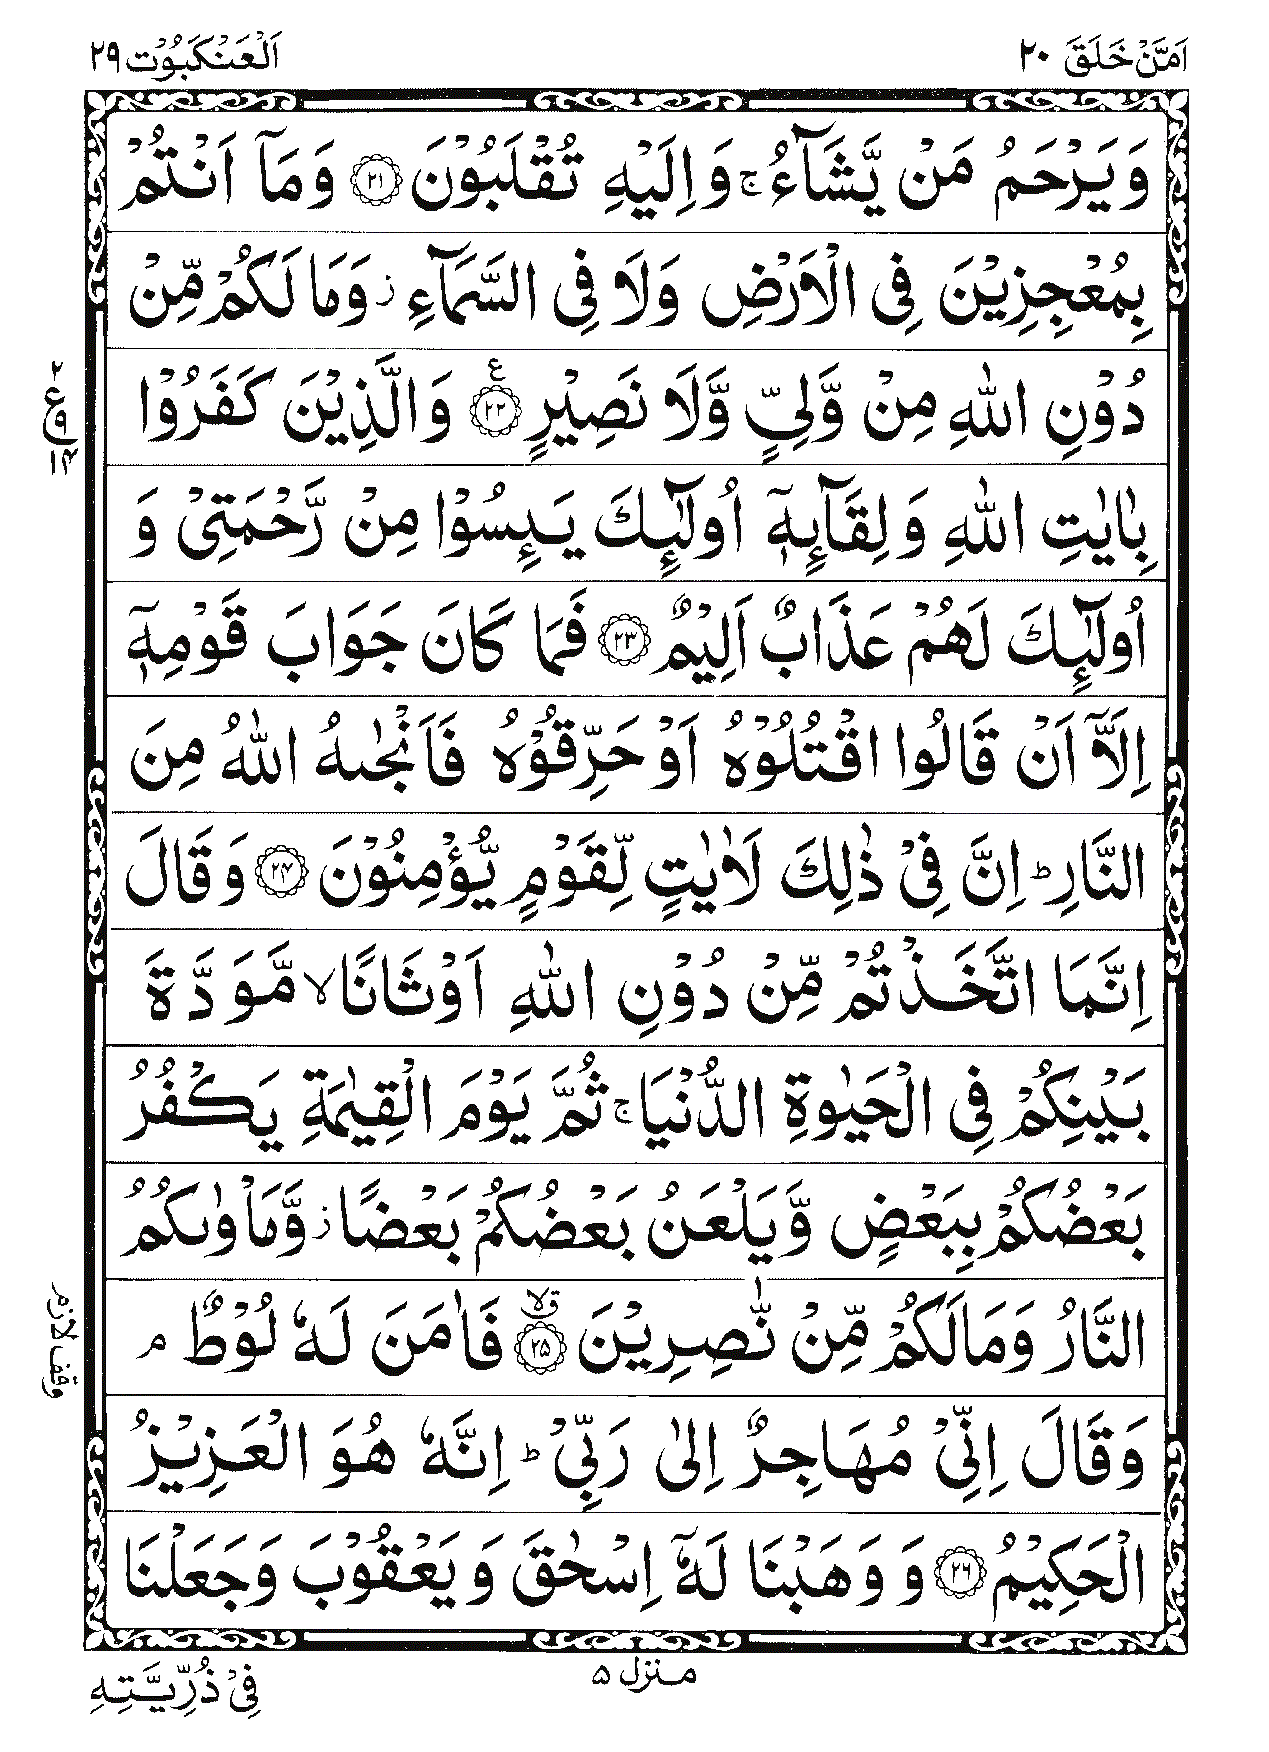 اَمَّنْ خَلَقَ ۲۰
اَلْعَنْكَبُوْت ۲۹
وَيَرْحَمُ مَنْ يَّشَآءُ ۚ وَاِلَيْهِ تُقْلَبُوْنَ ۝۲۱ وَمَآ اَنْتُمْ
بِمُعْجِزِيْنَ فِى الْاَرْضِ وَلَا فِى السَّمَآءِ ز وَمَا لَكُمْ مِّنْ
دُوْنِ اللّٰهِ مِنْ وَّلِىٍّ وَّلَا نَصِيْرٍ ۝۲۲ ع وَالَّذِيْنَ كَفَرُوْا
۲
ع ۹
۱۴
بِاٰيٰتِ اللّٰهِ وَلِقَآىِٕهٖٓ اُولٰٓىِٕكَ يَىِٕسُوْا مِنْ رَّحْمَتِىْ وَ
اُولٰٓىِٕكَ لَهُمْ عَذَابٌ اَلِيْمٌ ۝۲۳ فَمَا كَانَ جَوَابَ قَوْمِهٖٓ
اِلَّآ اَنْ قَالُوا اقْتُلُوْهُ اَوْ حَرِّقُوْهُ فَاَنْجٰىهُ اللّٰهُ مِنَ
النَّارِ ؕ اِنَّ فِىْ ذٰلِكَ لَاٰيٰتٍ لِّقَوْمٍ يُّؤْمِنُوْنَ ۝۲۴ وَقَالَ
اِنَّمَا اتَّخَذْتُمْ مِّنْ دُوْنِ اللّٰهِ اَوْثَانًا ۙ مَّوَدَّةَ
بَيْنِكُمْ فِى الْحَيٰوةِ الدُّنْيَا ۚ ثُمَّ يَوْمَ الْقِيٰمَةِ يَكْفُرُ
بَعْضُكُمْ بِبَعْضٍ وَّيَلْعَنُ بَعْضُكُمْ بَعْضًا ز وَّمَاْوٰىكُمُ
النَّارُ وَمَا لَكُمْ مِّنْ نّٰصِرِيْنَ ۝۲۵ قلا فَاٰمَنَ لَهٗ لُوْطٌ م
وقف لازم
وَقَالَ اِنِّىْ مُهَاجِرٌ اِلٰى رَبِّىْ ؕ اِنَّهٗ هُوَ الْعَزِيْزُ
الْحَكِيْمُ ۝۲۶ وَوَهَبْنَا لَهٗٓ اِسْحٰقَ وَيَعْقُوْبَ وَجَعَلْنَا
منزل ۵
فِىْ ذُرِّيَّتِهِ